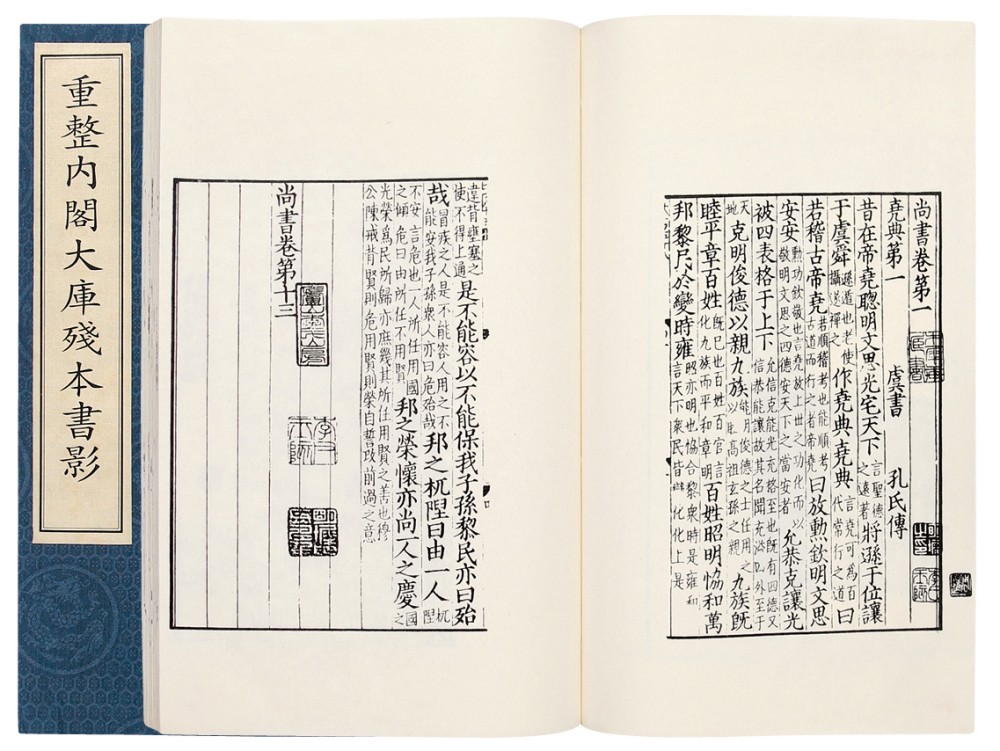 重整内閣大庫殘本書影
尚書卷第一
堯典第一 虞書 孔氏傳
昔在帝堯聰明文思光宅天下言聖德之遠著將遜于位讓
于虞舜遜遁也老使攝遂禪之作堯典堯典言堯可為百代常行之道曰
若稽古帝堯若順稽考也能順考古道而行之者帝堯曰放勳欽明文思
安安勳功欽敬也言堯放上世之功化而以敬明文思之四德安天下之當安者允恭克讓光
被四表格于上下允信克能光充格至也既有四德又信恭能讓故其名聞充溢四外至于
天地克明俊德以親九族能明俊德之士任用之以睦高祖玄孫之親九族既
睦平章百姓既已也百姓百官言化九族而平和章明百姓昭明恊和萬
邦黎民於變時雍昭亦明也恊合黎衆時是雍和言天下衆民皆變化化上是
違背壅塞之使不得上通是不能容以不能保我子孫黎民亦曰殆
哉冒疾之人是不能容人用之不能安我子孫衆人亦曰危殆哉邦之杌隉曰由一人杌隉
不安言危也一人所任用國之傾危曰由所任不用賢邦之榮懷亦尚一人之慶國之
光榮為民所歸亦庶幾其所任用賢之善也穆
公陳戒背賢則危用賢則榮自誓改前過之意
尚書卷第十三